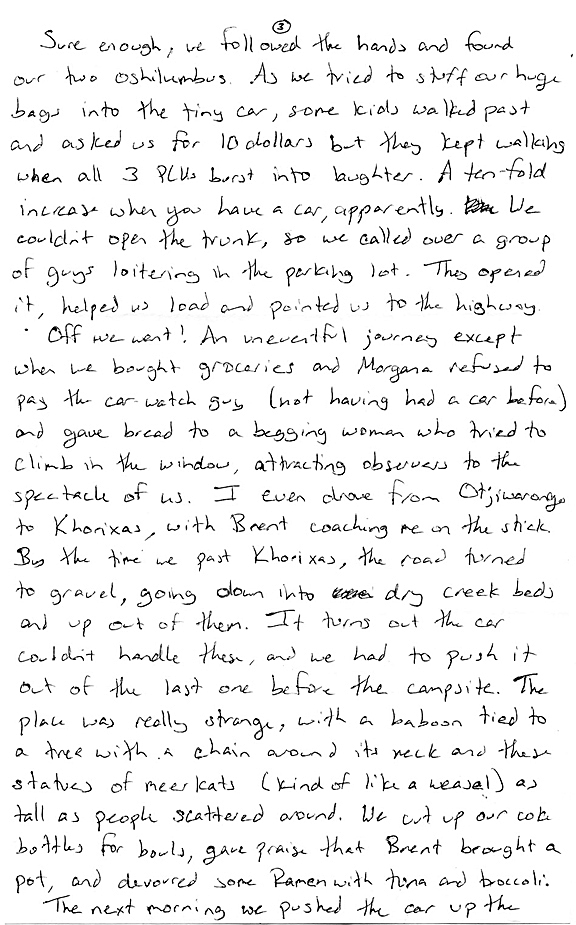 ③
Sure enough, we followed the hands and found
our two oshilumbus. As we tried to stuff our huge
bags into the tiny car, some kids walked past
and asked us for 10 dollars but they kept walking
when all 3 PCVs burst into laughter. A ten-fold
increase when you have a car, apparently. We
couldn't open the trunk, so we called over a group
of guys loitering in the parking lot. They opened
it, helped us load and pointed us to the highway.
Off we went! An uneventful journey except
when we bought groceries and Morgana refused to
pay the car-watch guy (not having had a car before)
and gave bread to a begging woman who tried to
climb in the window, attracting observers to the
spectacle of us. I even drove from Otjiwarongo
to Khorixas, with Brent coaching me on the stick.
By the time we past Khorixas, the road turned
to gravel, going down into dry creek beds
and up out of them. It turns out the car
couldn't handle these, and we had to push it
out of the last one before the campsite. The
place was really strange, with a baboon tied to
a tree with a chain around its neck and these
statues of meerkats (kind of like a weasel) as
tall as people scattered around. We cut up our coke
bottles for bowls, gave praise that Brent brought a
pot, and devoured some Ramen with tuna and broccoli.
The next morning we pushed the car up the